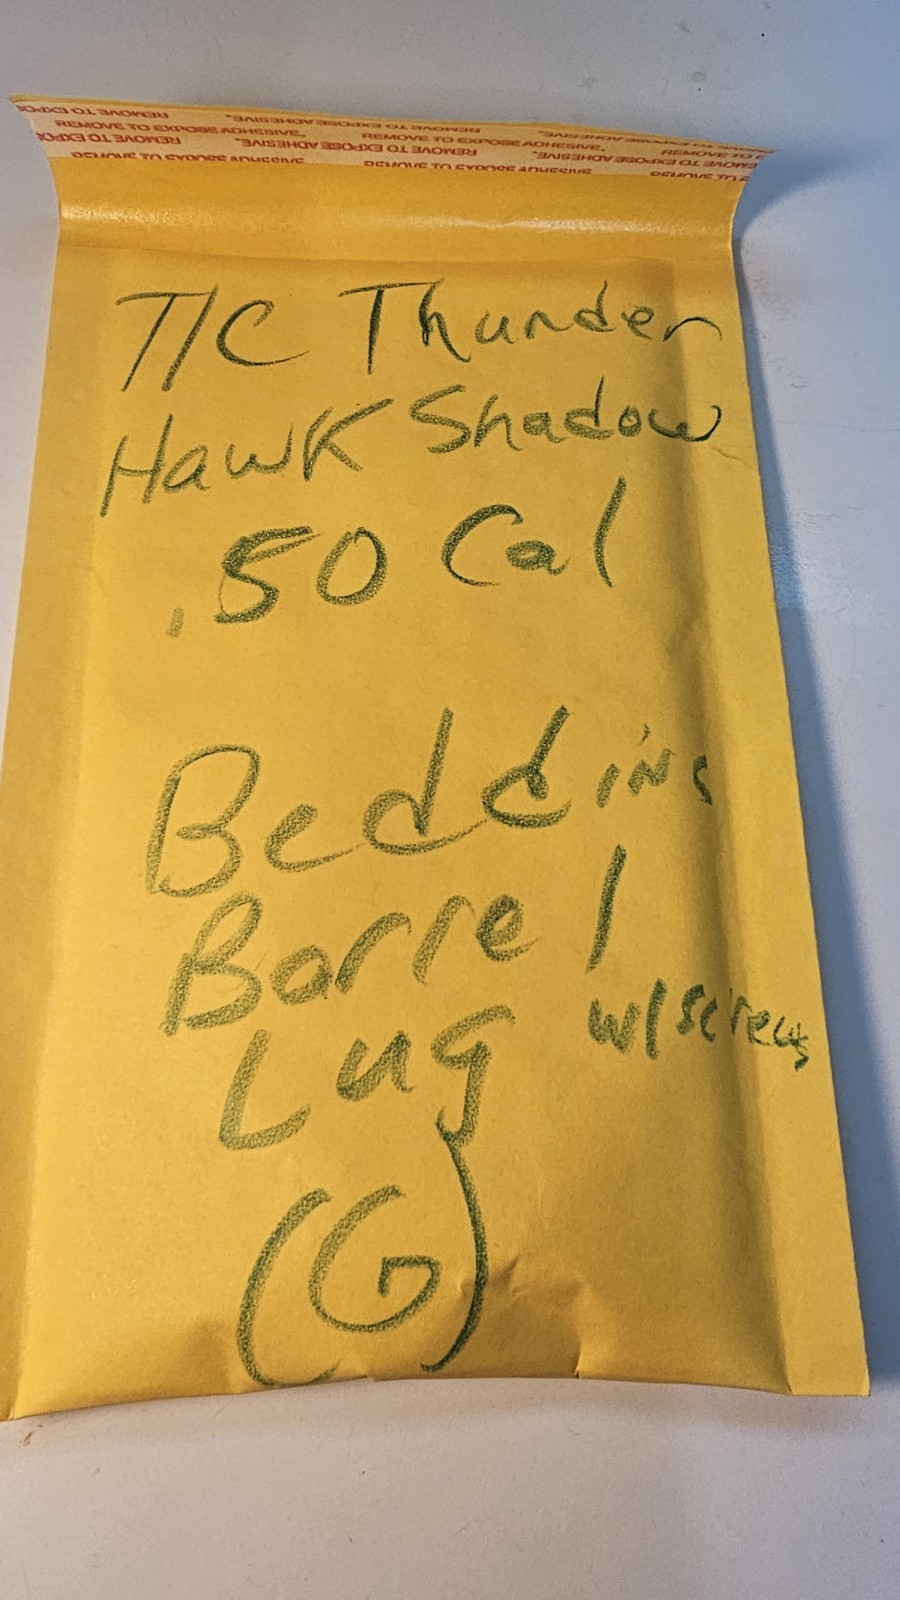 REMOVE TO EXPOSE ADHESIVE. REMOVE TO EXPOSE ADHESIVE.
REMOVE TO EXPOSE ADHESIVE. REMOVE TO EXPOSE ADHESIVE. REMOVE TO
REMOVE TO EXPOSE ADHESIVE. REMOVE TO EXPOSE ADHESIVE.
T/C Thunder
HawK Shadow
.50 Cal
Bedding
Barrel
Lug w/screws
(G)